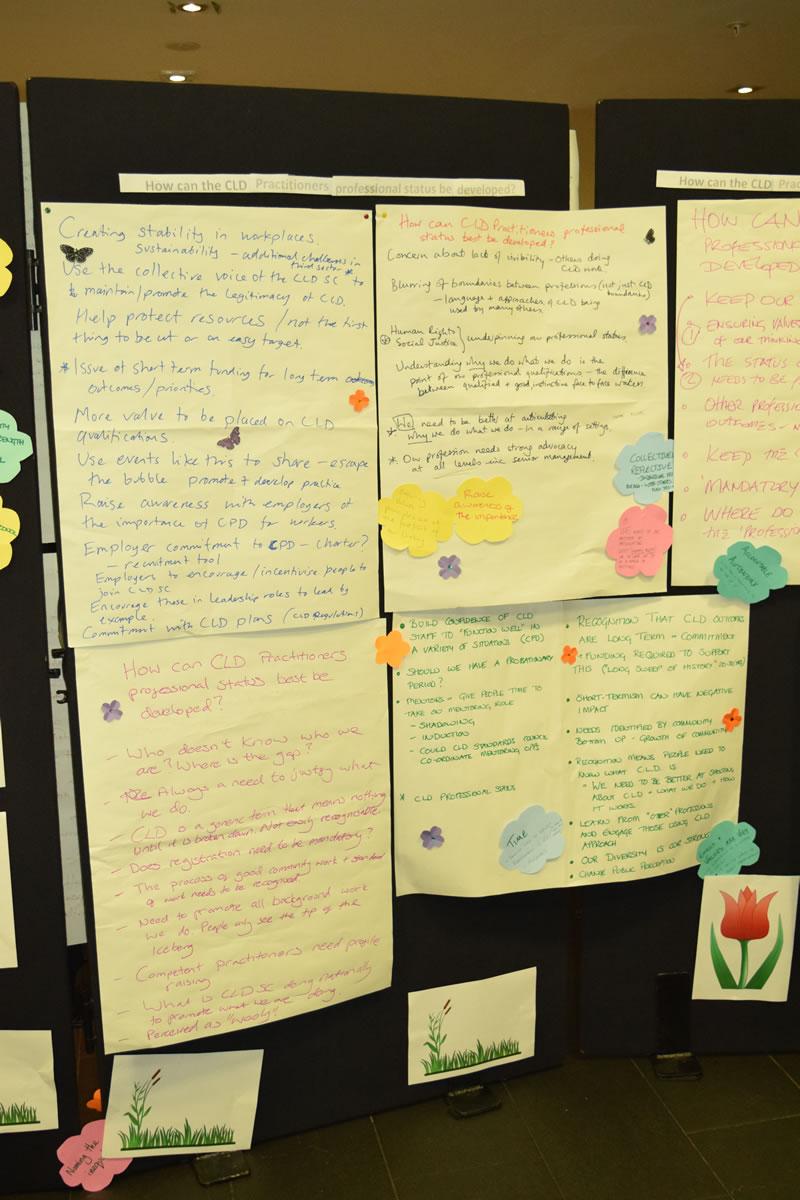 How can the CLD Practitioners professional status be developed?
Creating stability in workplaces.
Sustainability - additional challenges in
third sector *
Use the collective voice of the CLD SC to
maintain/promote the legitimacy of CLD.
Help protect resources / not the first
thing to be cut or an easy target.
* Issue of short term funding for long term
outcomes/priorities.
More value to be placed on CLD
qualifications.
Use events like this to share - escape
the bubble promote + develop practice
Raise awareness with employers of
the importance of CPD for workers.
Employer commitment to CPD - Charter?
- recruitment tool
Employers to encourage/incentivise people to
join CLDSC
Encourage those in leadership roles to lead by
example.
Commitment with CLD plans (CLD Regulations)
How can CLD Practitioners professional
status best be developed?
Concern about lack of visibility - others doing
CLD work
Blurring of boundaries between professions (not just CLD
boundaries)
- language + approaches of CLD being
used by many others.
Human Rights
Social Justice } underpinning our professional status.
Understanding why we do what we do is the
point of our professional qualifications - the difference
between qualified + good instinctive face to face workers.
* We need to be better at articulating
why we do what we do - in a range of settings.
* Our profession needs strong advocacy
at all levels - inc senior management.
Raise
awareness of
the importance
COLLECTIVE
REFLECTIVE
How can CLD Practitioners
professional status best be
developed?
- Who doesn't know who we
are? Where is the gap?
- Always a need to justify what
we do.
- CLD is a generic term that means nothing
until it is broken down. Not easily recognisable.
- Does registration need to be mandatory?
- The process of good community work + standard
of work needs to be recognised.
- Need to promote all background work
we do. People only see the tip of the
Iceberg
- Competent practitioners need profile
raising
- What is CLDSC doing nationally
to promote what we are doing.
- Perceived as "Wooly"
• BUILD CONFIDENCE OF CLD
STAFF TO "FUNCTION WELL" IN
A VARIETY OF SITUATIONS (CPD)
• SHOULD WE HAVE A PROBATIONARY
PERIOD?
• MENTORS - GIVE PEOPLE TIME TO
TAKE ON MENTORING ROLE
- SHADOWING
- INDUCTION
- COULD CLD STANDARDS COUNCIL
CO-ORDINATE MENTORING OPPS
* CLD PROFESSIONAL
TIME
• RECOGNITION THAT CLD OUTCOMES
ARE LONG TERM = COMMITMENT
+ FUNDING REQUIRED TO SUPPORT
THIS ("LONG SWEEP OF HISTORY"
• SHORT-TERMISM CAN HAVE NEGATIVE
IMPACT
• NEEDS IDENTIFIED BY COMMUNITY
BOTTOM UP - GROWTH OF COMMUNITY
• RECOGNITION MEANS PEOPLE NEED TO
KNOW WHAT C.L.D. IS
* WE NEED TO BE BETTER AT SHOUTING
ABOUT CLD + WHAT WE DO + HOW
IT WORKS.
• LEARN FROM "OTHER" PROFESSIONS
AND ENGAGE THOSE USING CLD
APPROACH
• OUR DIVERSITY IS OUR STRENGTH
• CHANGE PUBLIC PERCEPTION
How can the CLD
HOW CAN
DEVELOPED
KEEP OUR
① ENSURING
OF OUR THINKING
THE STATUS
② NEEDS TO BE
OTHER
OUTCOMES
KEEP THE
'MANDATORY
WHERE DO
THE
Naming the